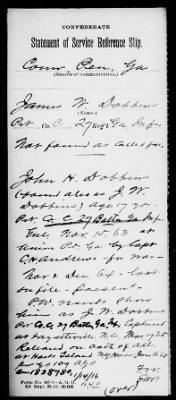 CONFEDERATE
Statement of Service Reference Slip.
Com'r Pen, Ga
(Source of communication.)
James W. Dobbins
(Name.)
Pvt Co. C, 27 Reg't Ga Inf.
Not found as called for.
John H. Dobbins
(found also as J. W.
Dobbins) Age 17 yrs
Pvt Co. C, 27 Battn Ga Inf
Enl. Nov. 15, 63 at
Union Pt Ga by Capt
C H Andrews for war
Nov & Dec 64 - last
on file - present
P.W. records show
him as J. W. Dobbins
Pvt Co. C, 27 Battn Ga Captured
at Fayetteville N.C. Mar
Released on oath of all
at Harts Island N.Y. Harbor June
(over)